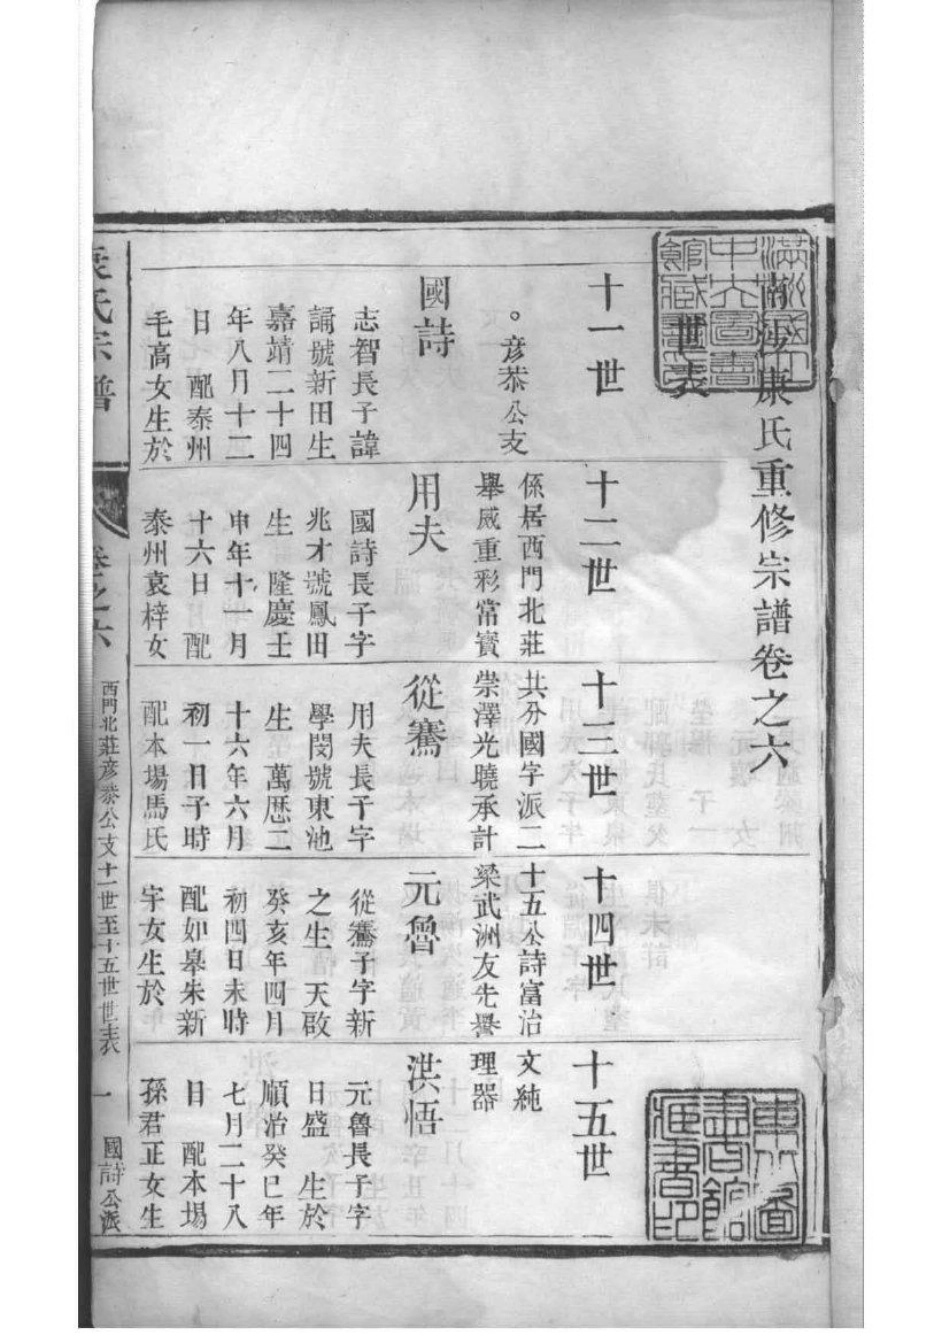 南沙康氏重修宗譜卷之六
世表
十一世
十二世
十三世
十四世
十五世
。彦恭公支
係居西門北莊
共分國字派二
十五公詩富治
文純
舉威重彩常賓
崇澤光曉承計
梁武洲友先譽
理器
國詩
志智長子諱
誦號新田生
嘉靖二十四
年八月十二
日 配泰州
毛高女生於
用夫
國詩長子字
兆才號鳳田
生 隆慶壬
申年十一月
十六日 配
泰州袁梓女
從騫
用夫長子字
學閔號東池
生 萬歷二
十六年六月
初一日子時
配本場馬氏
元魯
從騫子字新
之生 天啟
癸亥年四月
初四日未時
配如皋朱新
宇女生於
洪悟
元魯長子字
日盛 生於
順治癸巳年
七月二十八
日 配本場
孫君正女生
氏宗譜
卷之六
西門北莊彦恭公支十一世至十五世世表
一
國詩公派